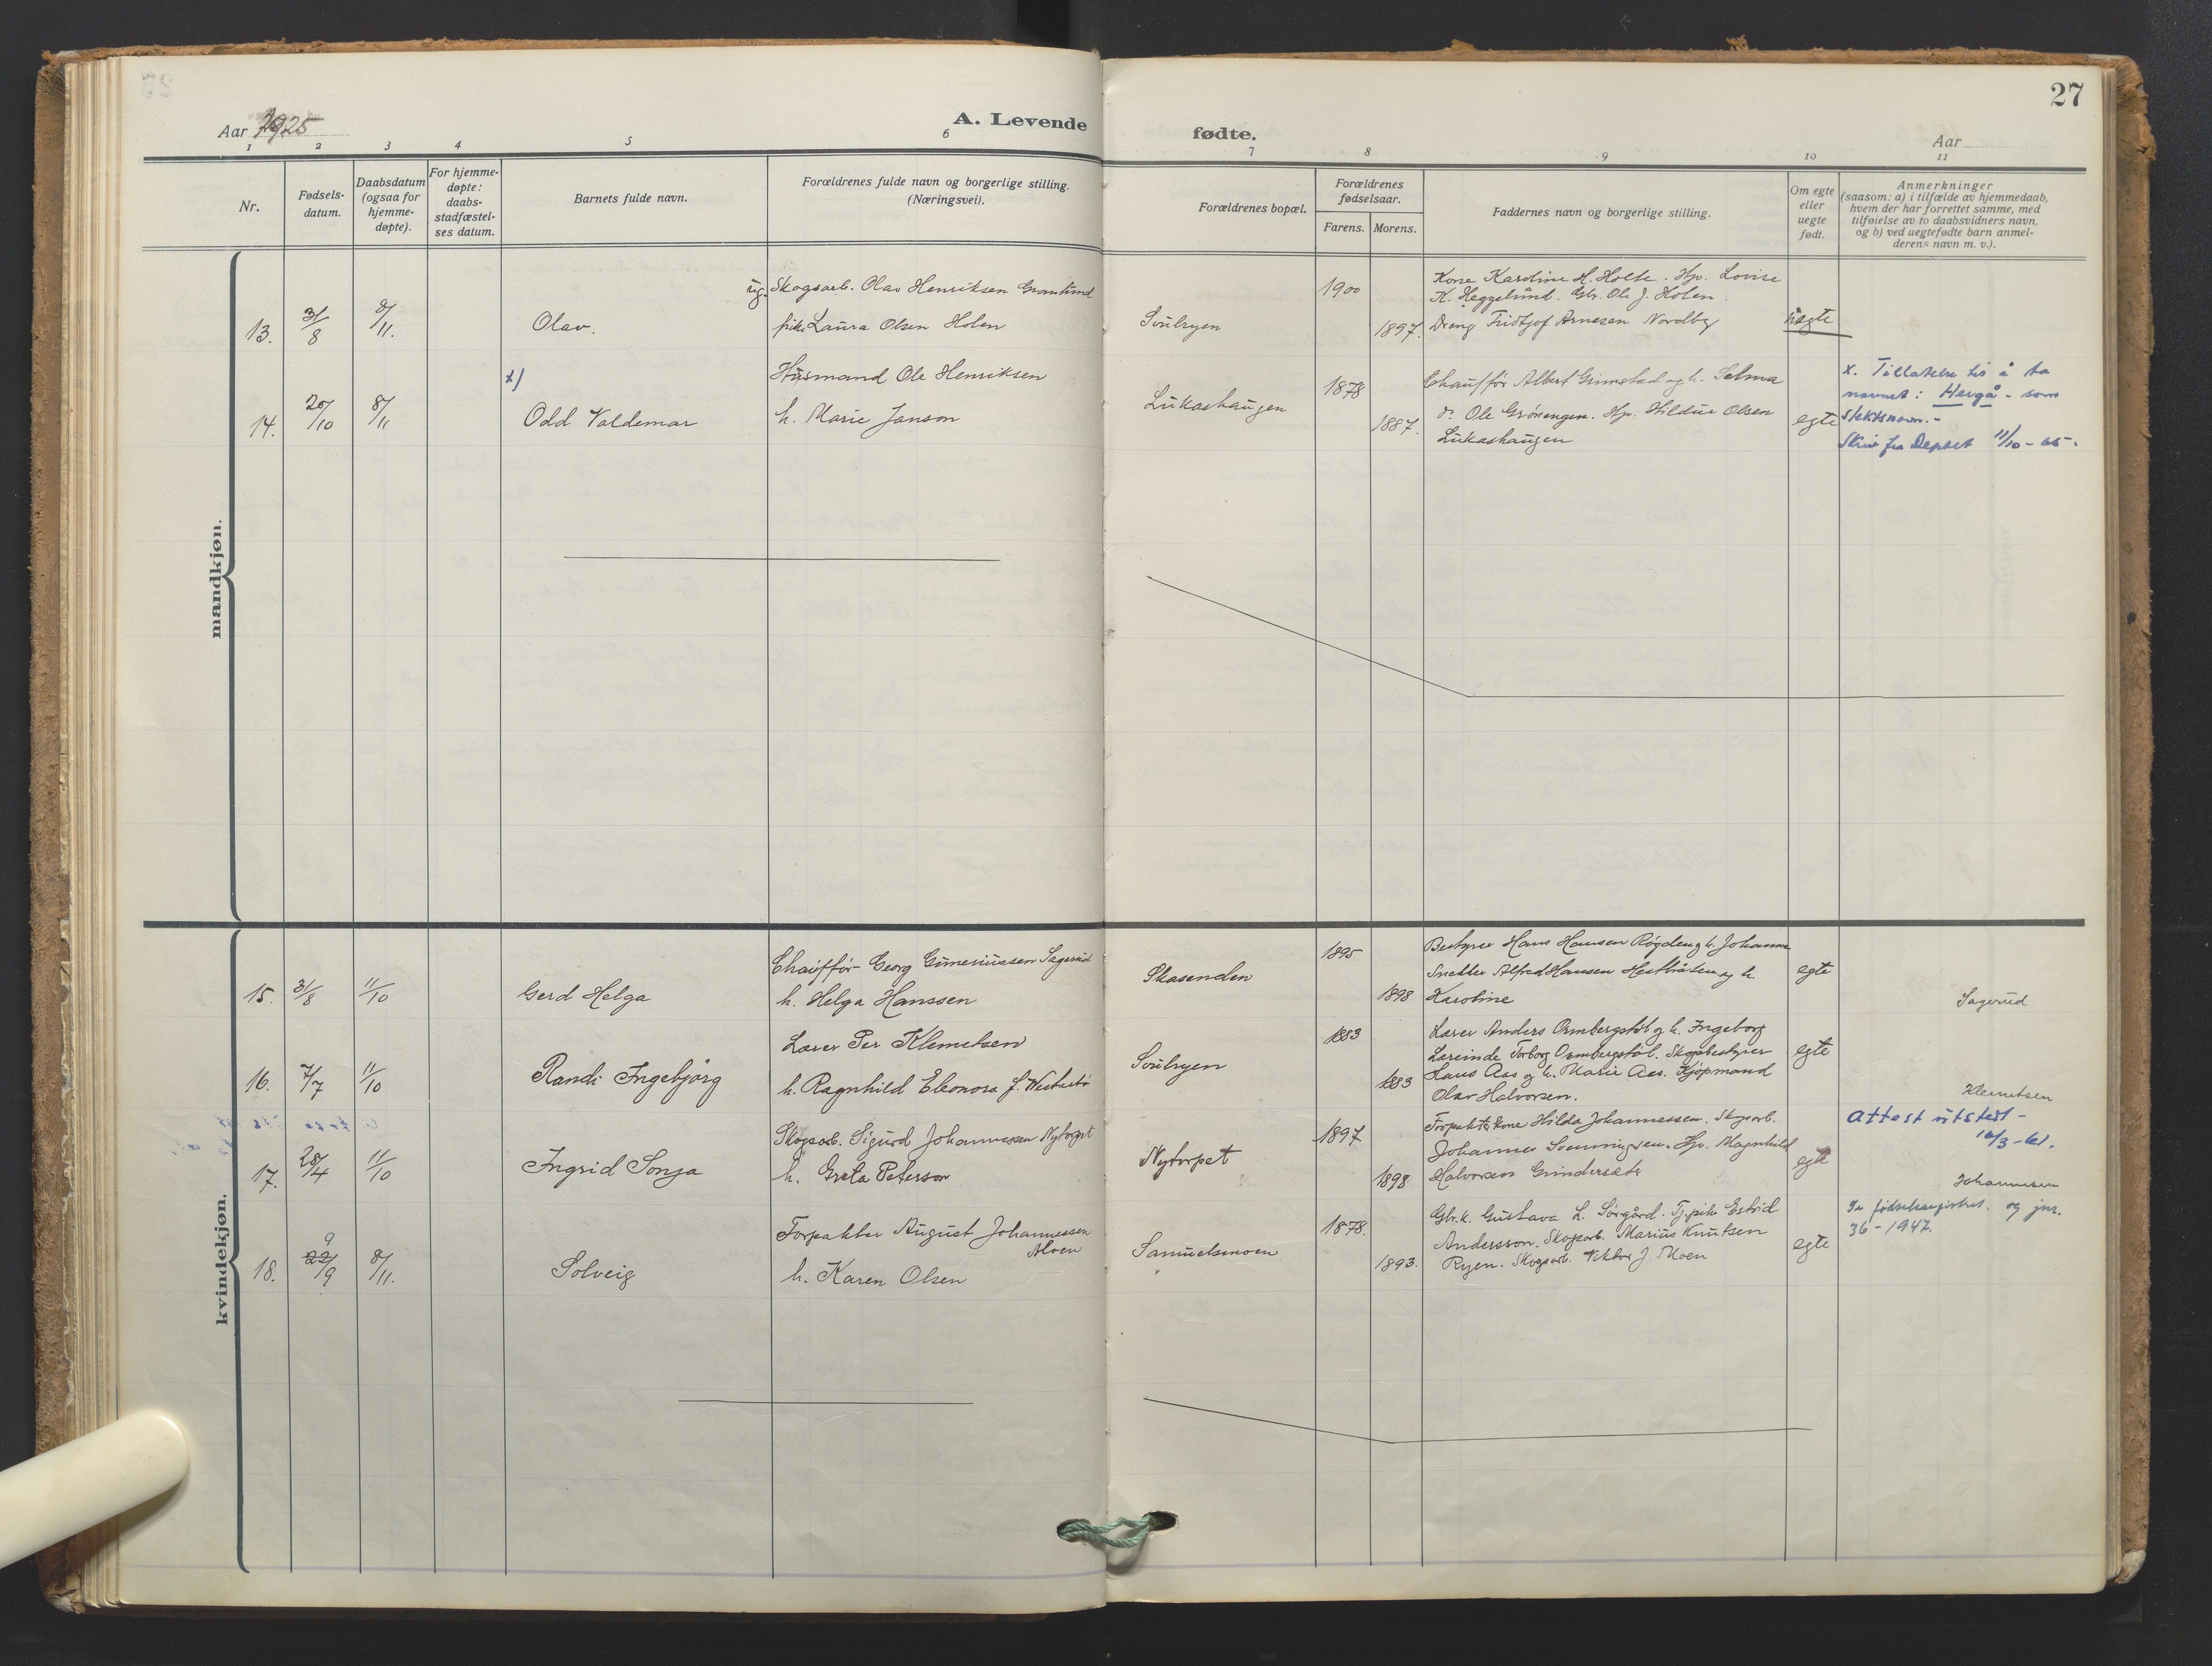 27
Aar 1925
A. Levende
fødte.
Aar
1 2 3 4 5 6 7 8 9 10 11
Nr.
Fødsels-
datum.
Daabsdatum
(ogsaa for
hjemme-
døpte).
For hjemme-
døpte:
daabs-
stadfæstel-
ses datum.
Barnets fulde navn.
Forældrenes fulde navn og borgerlige stilling.
(Næringsvei).
Forældrenes bopæl.
Forældrenes
fødselsaar.
Farens. Morens.
Faddernes navn og borgerlige stilling.
Om egte
eller
uegte
født.
Anmerkninger
(saasom: a) i tilfælde av hjemmedaab,
hvem der har forrettet samme, med
tilføielse av to daabsvidners navn,
og b) ved uegtefødte barn anmel-
derens navn m. v.).
mandkjøn.
13. 31/8 8/11. Olav.
ug. Skogsarb. Olav Henriksen
pike Laura Olsen Holen
1900
1897.
Kone Karoline H. Holte. Hp. Lovise
K. Heggelund. Gbr. Ole J. Holen.
Dreng Fridtjof Arnesen Nordby
uegte
14. 20/10 8/11
x)
Odd Valdemar
Husmand Ole Henriksen
h. Marie Janson
Lukashaugen
1878
1887.
Chauffør Albert Grimstad og h. Selma
Ole Grønengen. Hp. Hildur Olsen
Lukashaugen
egte
x. Tillatelse til å ta
navnet: Hergå - som
slektsnavn.-
Skriv fra Deptet 11/10-65.
kvindekjøn.
15. 31/8 11/10 Gerd Helga
Chauffør Georg Guneriussen Sagerud
h. Helga Hanssen
Skasenden
1895
1898
Bestyrer Hans Hansen Røgden og h. Johanne
Snekker Alfred Hansen Hestbråten og h.
Karoline
egte
Sagerud
16. 7/7 11/10 Randi Ingebjørg
Lærer Per Klemetsen
h. Ragnhild Eleonora f.
1883
1883
Lærer Anders Ormbergstøl og h. Ingeborg
Lærerinde Torborg Ormbergstøl. Skogbestyrer
Hans Aas og h. Marie Aas. Kjøpmand
Olav Halvorsen.
egte
Klemetsen
17. 28/4 11/10 Ingrid Sonja
Skogsarb. Sigurd Johannessen Nytorpet
h. Greta Peterson
Nytorpet
1897
1898
Forpakterkone Hilda Johannessen. Skogsarb.
Johannes Svenningsen. Hp. Magnhild
Halvorsen Grindersæte
egte
Attest utstedt -
16/3-61.
Johannessen
18. 22/9 9 8/11. Solveig
Forpakter August Johannessen
Moen
h. Karen Olsen
Samuelsmoen
1878.
1893.
Gbr.k. Gustava L. Sørgård. Tj.pike Estrid
Andersson. Skogsarb. Marius Knutsen
Ryen. Skogsarb. Viktor J. Moen
egte
Se fødselsregistret. og jnr.
36-1947.